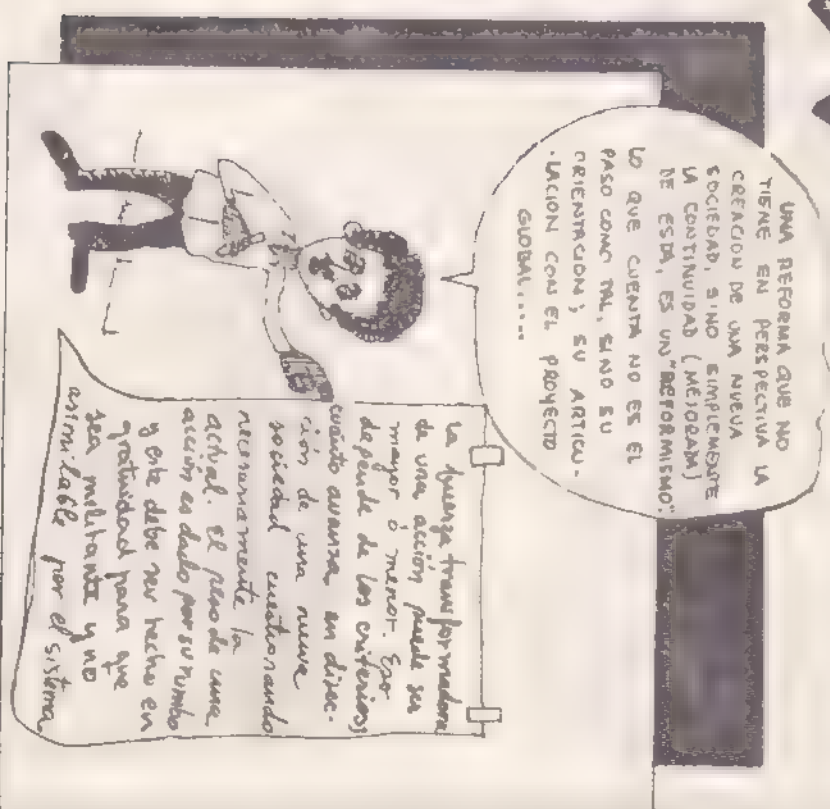 UNA REFORMA QUE NO
TIENE EN PERSPECTIVA LA
CREACION DE UNA NUEVA
SOCIEDAD, SINO SIMPLEMENTE
LA CONTINUIDAD (MEJORADA)
DE ESTA, ES UN "REFORMISMO".
LO QUE CUENTA NO ES EL
PASO COMO TAL, SINO SU
ORIENTACION; SU ARTICU-
LACION CON EL PROYECTO
GLOBAL....
La fuerza transformadora
de una acción puede ser
mayor ó menor. Eso
depende de los criterios,
cuánto avanza en direc-
ción de una nueva
sociedad cuestionando
necesariamente la
actual. El peso de una
acción es dado por su rumbo
y este debe ser hecho en
gratuidad para que
sea militante y no
asimilable por el sistema